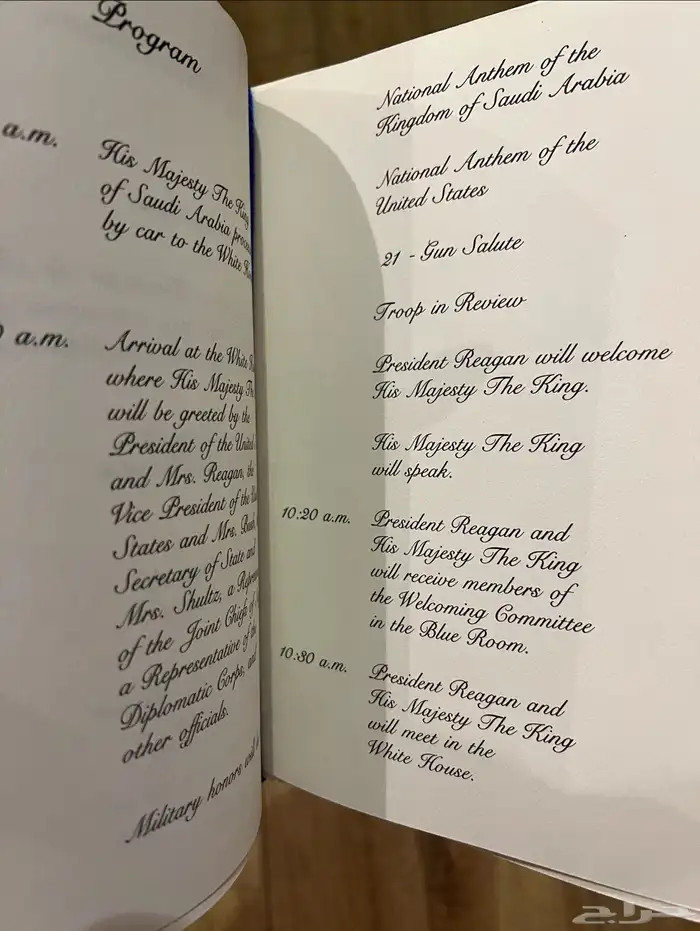 Program
a.m.
His Majesty The King
of Saudi Arabia
by car to the White
a.m.
Arrival at the White
where His Majesty
will be greeted by the
President of the United
and Mrs. Reagan, the
Vice President of the
States and Mrs. Bush,
Secretary of State and
Mrs. Shultz, a
of the Joint Chiefs of
a Representative of the
Diplomatic Corps, and
other officials.
Military honors
National Anthem of the
Kingdom of Saudi Arabia
National Anthem of the
United States
21 - Gun Salute
Troop in Review
President Reagan will welcome
His Majesty The King.
His Majesty The King
will speak.
10:20 a.m. President Reagan and
His Majesty The King
will receive members of
the Welcoming Committee
in the Blue Room.
10:30 a.m. President Reagan and
His Majesty The King
will meet in the
White House.
حراج